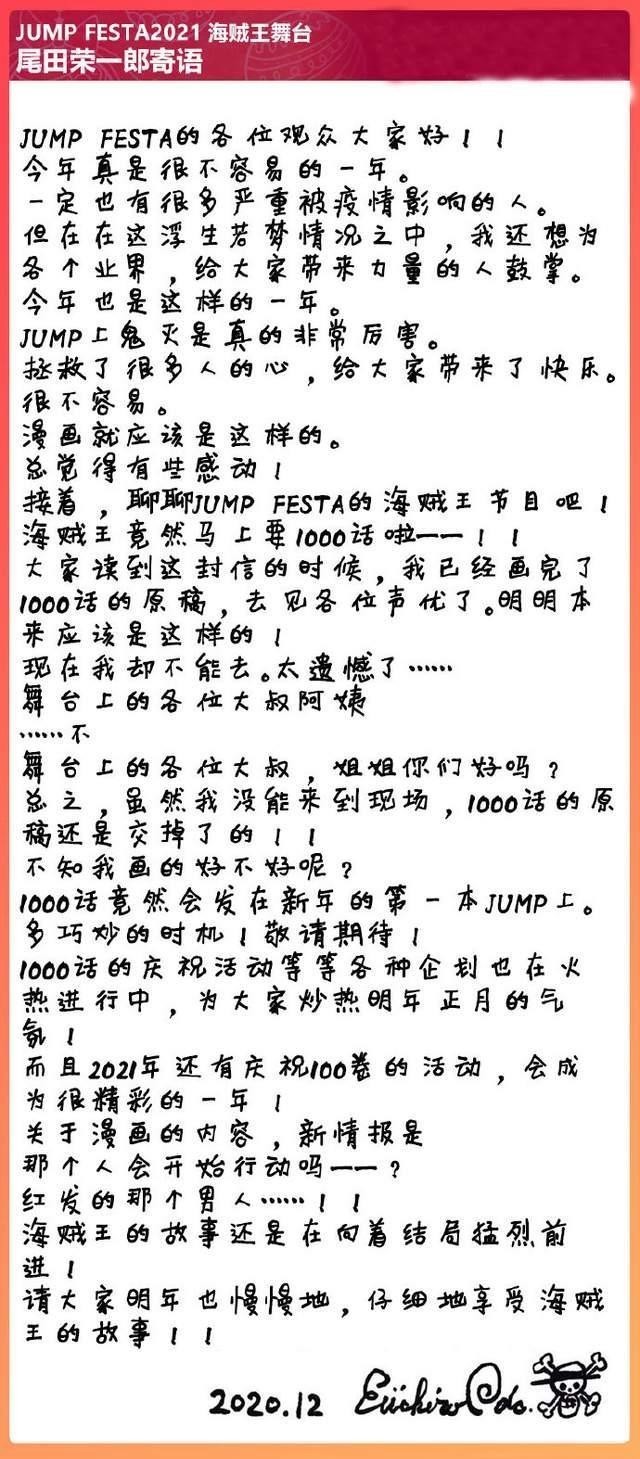 JUMP FESTA2021 海贼王舞台
尾田荣一郎寄语
JUMP FESTA的各位观众大家好！！
今年真是很不容易的一年。
一定也有很多严重被疫情影响的人。
但在在这浮生若梦情况之中，我还想为
各个业界，给大家带来力量的人鼓掌。
今年也是这样的一年。
JUMP上鬼灭是真的非常厉害。
拯救了很多人的心，给大家带来了快乐。
很不容易。
漫画就应该是这样的。
总觉得有些感动！
接着，聊聊JUMP FESTA的海贼王节目吧！
海贼王竟然马上要1000话啦——！！
大家读到这封信的时候，我已经画完了
1000话的原稿，去见各位声优了。明明本
来应该是这样的！
现在我却不能去。太遗憾了……
舞台上的各位大叔阿姨
……不
舞台上的各位大叔，姐姐你们好吗？
总之，虽然我没能来到现场，1000话的原
稿还是交掉了的！！
不知我画的好不好呢？
1000话竟然会发在新年的第一本JUMP上。
多巧妙的时机！敬请期待！
1000话的庆祝活动等等各种企划也在火
热进行中，为大家炒热明年正月的气
氛！
而且2021年还有庆祝100卷的活动，会成
为很精彩的一年！
关于漫画的内容，新情报是
那个人会开始行动吗——？
红发的那个男人……！！
海贼王的故事还是在向着结局猛烈前
进！
请大家明年也慢慢地，仔细地享受海贼
王的故事！！
2020.12 Eiichiro Oda.